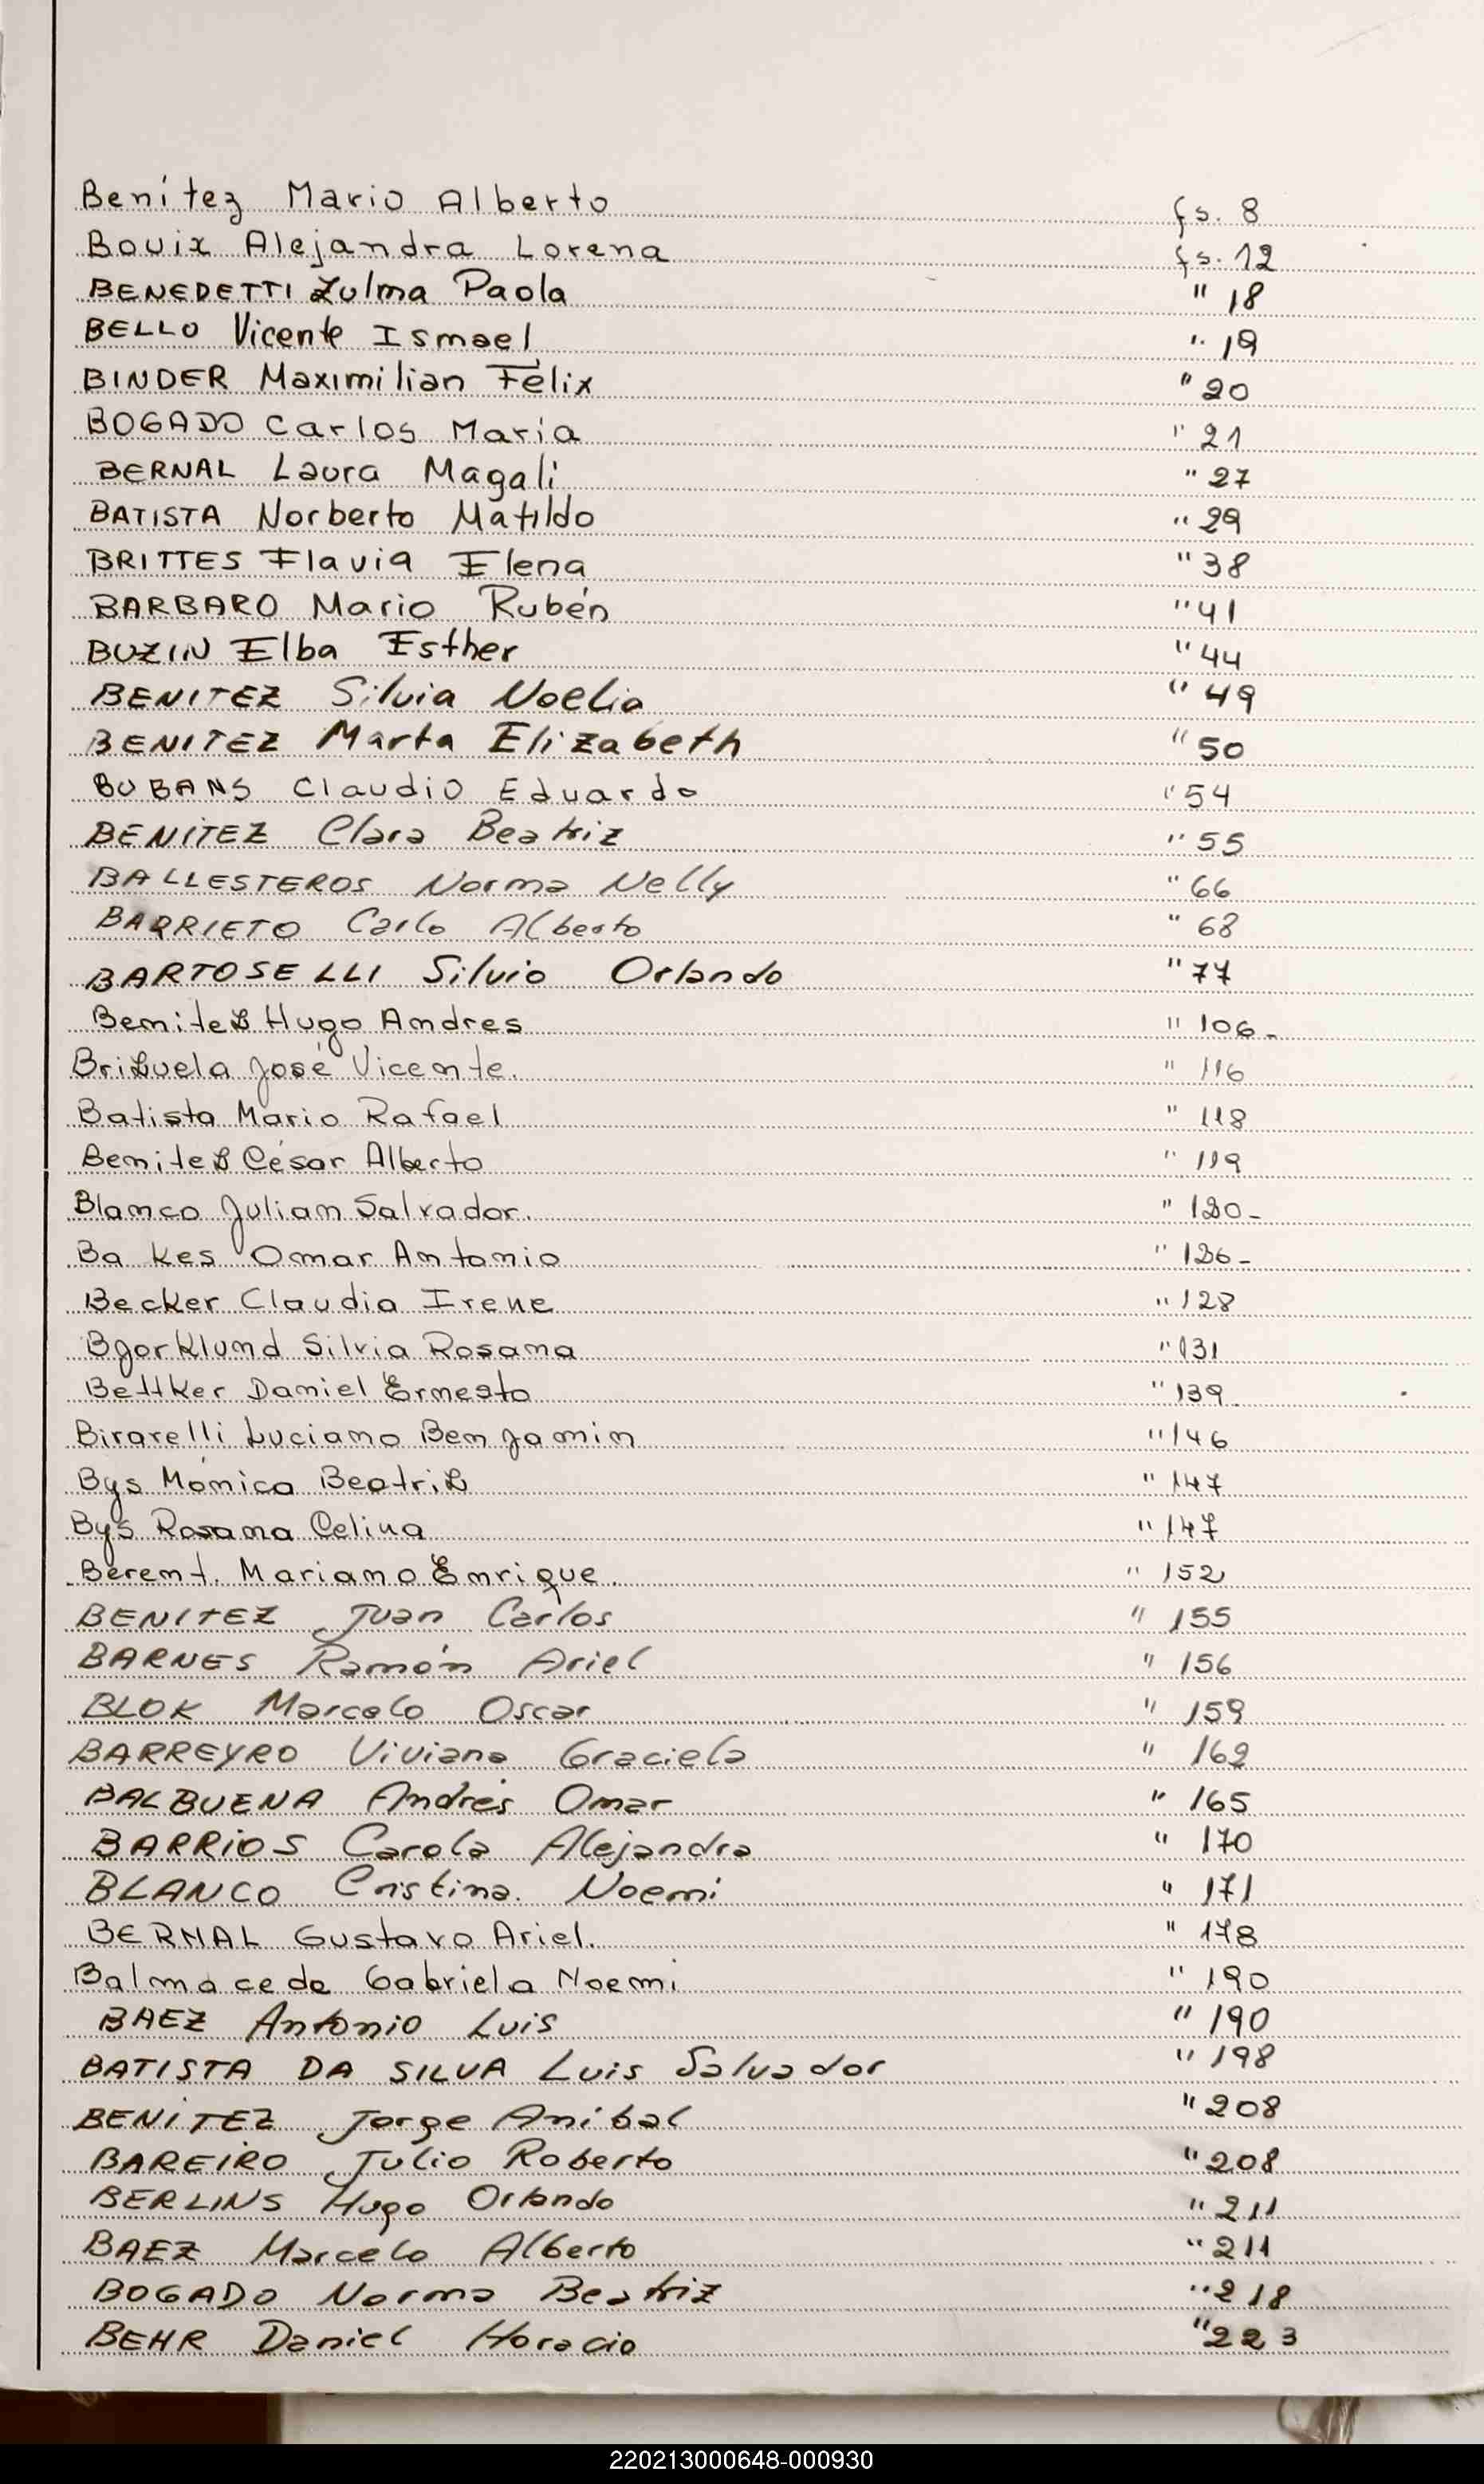 Benítez Mario Alberto fs. 8
Bouix Alejandra Lorena fs. 12
BENEDETTI Zulma Paola " 18
BELLO Vicente Ismael " 19
BINDER Maximilian Félix " 20
BOGADO Carlos María " 21
BERNAL Laura Magali " 27
BATISTA Norberto Matildo " 29
BRITTES Flavia Elena " 38
BARBARO Mario Rubén " 41
BUZIIN Elba Esther " 44
BENITEZ Silvia Noelia " 49
BENITEZ Marta Elizabeth " 50
BUBANS Claudio Eduardo " 54
BENITEZ Clara Beatriz " 55
BALLESTEROS Norma Nelly " 66
BARRIETO Carlo Alberto " 68
BARTOSELLI Silvio Orlando " 77
Benitez Hugo Andres " 106-
Brizuela José Vicente. " 116
Batista Mario Rafael " 118
Benitez César Alberto " 119
Blanco Julian Salvador. " 120-
Ba kes Omar Antonio " 126-
Becker Claudia Irene " 128
Bjorklund Silvia Rosana " 131
Bettker Daniel Ernesto " 139
Birarelli Luciano Benjamin " 146
Bys Mónica Beatriz " 147
Bys Rosana Celina " 147
Berent. Mariano Enrique. " 152
BENITEZ Juan Carlos " 155
BARNES Ramón Ariel " 156
BLOK Marcelo Oscar " 159
BARREYRO Viviana Graciela " 162
BALBUENA Andrés Omar " 165
BARRIOS Carola Alejandra " 170
BLANCO Cristina. Noemi " 171
BERNAL Gustavo Ariel. " 178
Balmaceda Gabriela Noemi " 190
BAEZ Antonio Luis " 190
BATISTA DA SILVA Luis Salvador " 198
BENITEZ Jorge Anibal " 208
BAREIRO Julio Roberto " 208
BERLINS Hugo Orlando " 211
BAEZ Marcelo Alberto " 211
BOGADO Norma Beatriz " 218
BEHR Daniel Horacio " 223
220213000648-000930